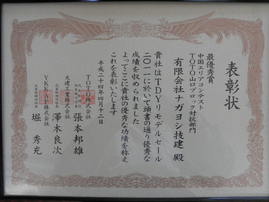 表彰状
最優秀賞
中国エリアコンテスト
TOTO山口ブロック対抗部門
有限会社ナガヨシ技建 殿
貴社はTDYリモデルセール
二〇一一において頭書の通り優秀な
成績を収められました
よってここに貴社の優秀な功績を称え
これを表彰いたします
平成二十四年四月十二日
TOTO株式会社
張本邦雄
大建工業株式会社
澤木良次
YKKAP株式会社
堀秀充